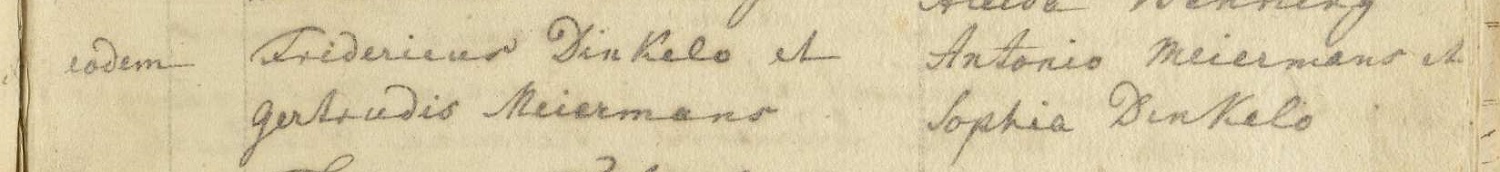 eodem Fridericus Dinkelo et Antonio Meiermans et
Gertrudis Meiermans Sophia Dinkelo